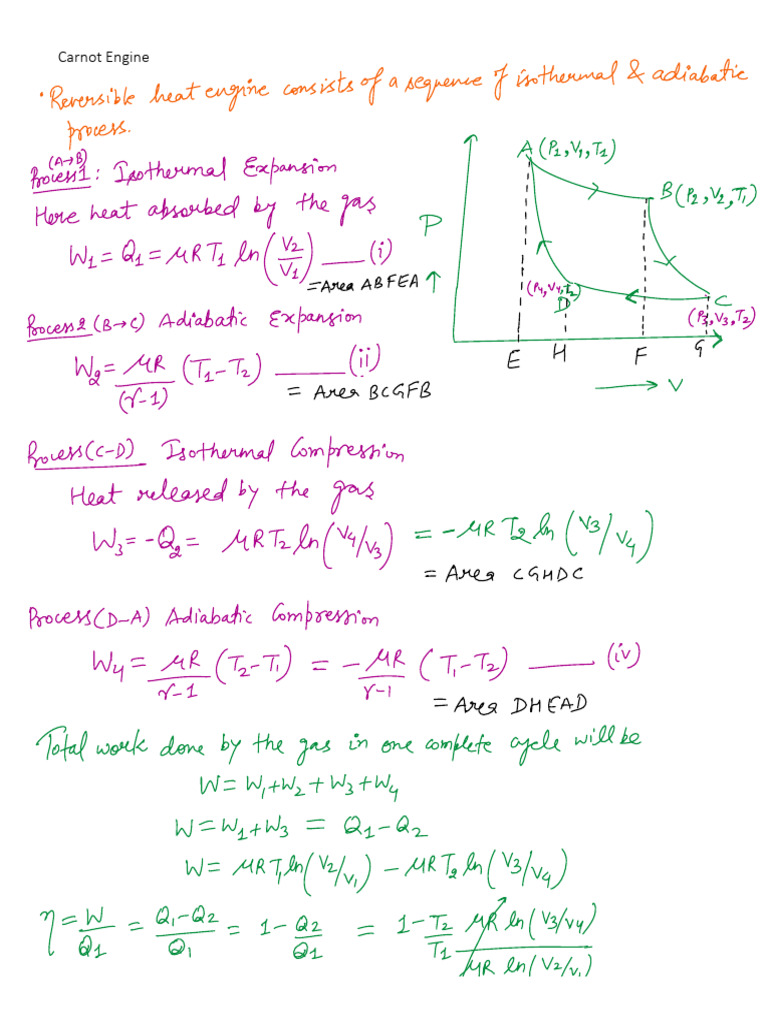 Carnot Engine
• Reversible heat engine consists of a sequence of isothermal & adiabatic
process.
(A→B)
Process 1 : Isothermal Expansion
Here heat absorbed by the gas
W₁ = Q₁ = μRT₁ ln(V₂/V₁) ___ (i)
= Area ABFEA ↑
Process 2 (B→C) Adiabatic Expansion
W₂ = μR/(γ-1) (T₁-T₂) ___ (ii)
= Area BCGFB
A (P₁,V₁,T₁)
B (P₂,V₂,T₁)
P
(P₄,V₄,T₂)
D
C
(P₃,V₃,T₂)
E H F G
→ V
Process (C-D) Isothermal Compression
Heat released by the gas
W₃ = -Q₂ = μRT₂ ln(V₄/V₃) = -μRT₂ ln(V₃/V₄)
= Area CGHDC
Process (D-A) Adiabatic Compression
W₄ = μR/γ-1 (T₂-T₁) = -μR/γ-1 (T₁-T₂) ___ (iv)
= Area DHEAD
Total work done by the gas in one complete cycle will be
W = W₁+W₂+W₃+W₄
W = W₁+W₃ = Q₁-Q₂
W = μRT₁ ln(V₂/V₁) - μRT₂ ln(V₃/V₄)
η = W/Q₁ = Q₁-Q₂/Q₁ = 1-Q₂/Q₁ = 1-T₂/T₁ μR ln(V₃/V₄)/μR ln(V₂/V₁)